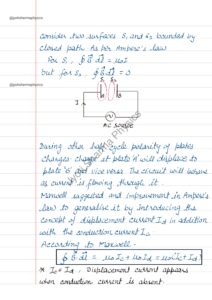 @galsharmaphysics
Consider two surfaces S₁ and S₂ bounded by
closed path. As per Ampere's law
For S₁, ∮ B⃗ · dl⃗ = μ₀I
but for S₂, ∮ B⃗ · dl⃗ = 0
S₁ S₂
A B
I
A.C SOURCE
During other half cycle polarity of plates
changes charge at plate 'A' will displace to
plate 'B' and vice versa. The circuit will behave
as current is flowing through it.
Maxwell suggested and improvement in Ampere's
law to generalise it by introducing the
concept of displacement current Id in addition
with the conduction current Ic.
According to Maxwell -
∮ B⃗ · dl⃗ = μ₀Ic + μ₀Id = μ₀(Ic + Id)
* Ic = Id, Displacement current appears
when conduction current is absent.